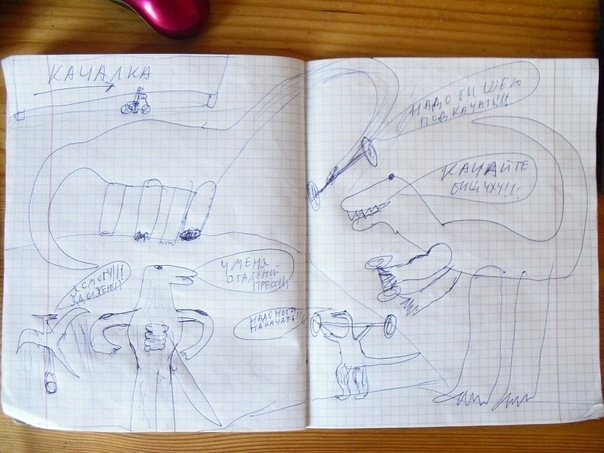 КАЧАЛКА
НАДО БЫ ШЕЮ
ПОДКАЧАТЬ!!
КАЧАЙТЕ
БИЦУХУ!!!
У МЕНЯ
ПРЕСС!!
Я СМОГУ!!!
Я ДОЛЖЕН!!
НАДО НОГИ
НАКАЧАТЬ!!